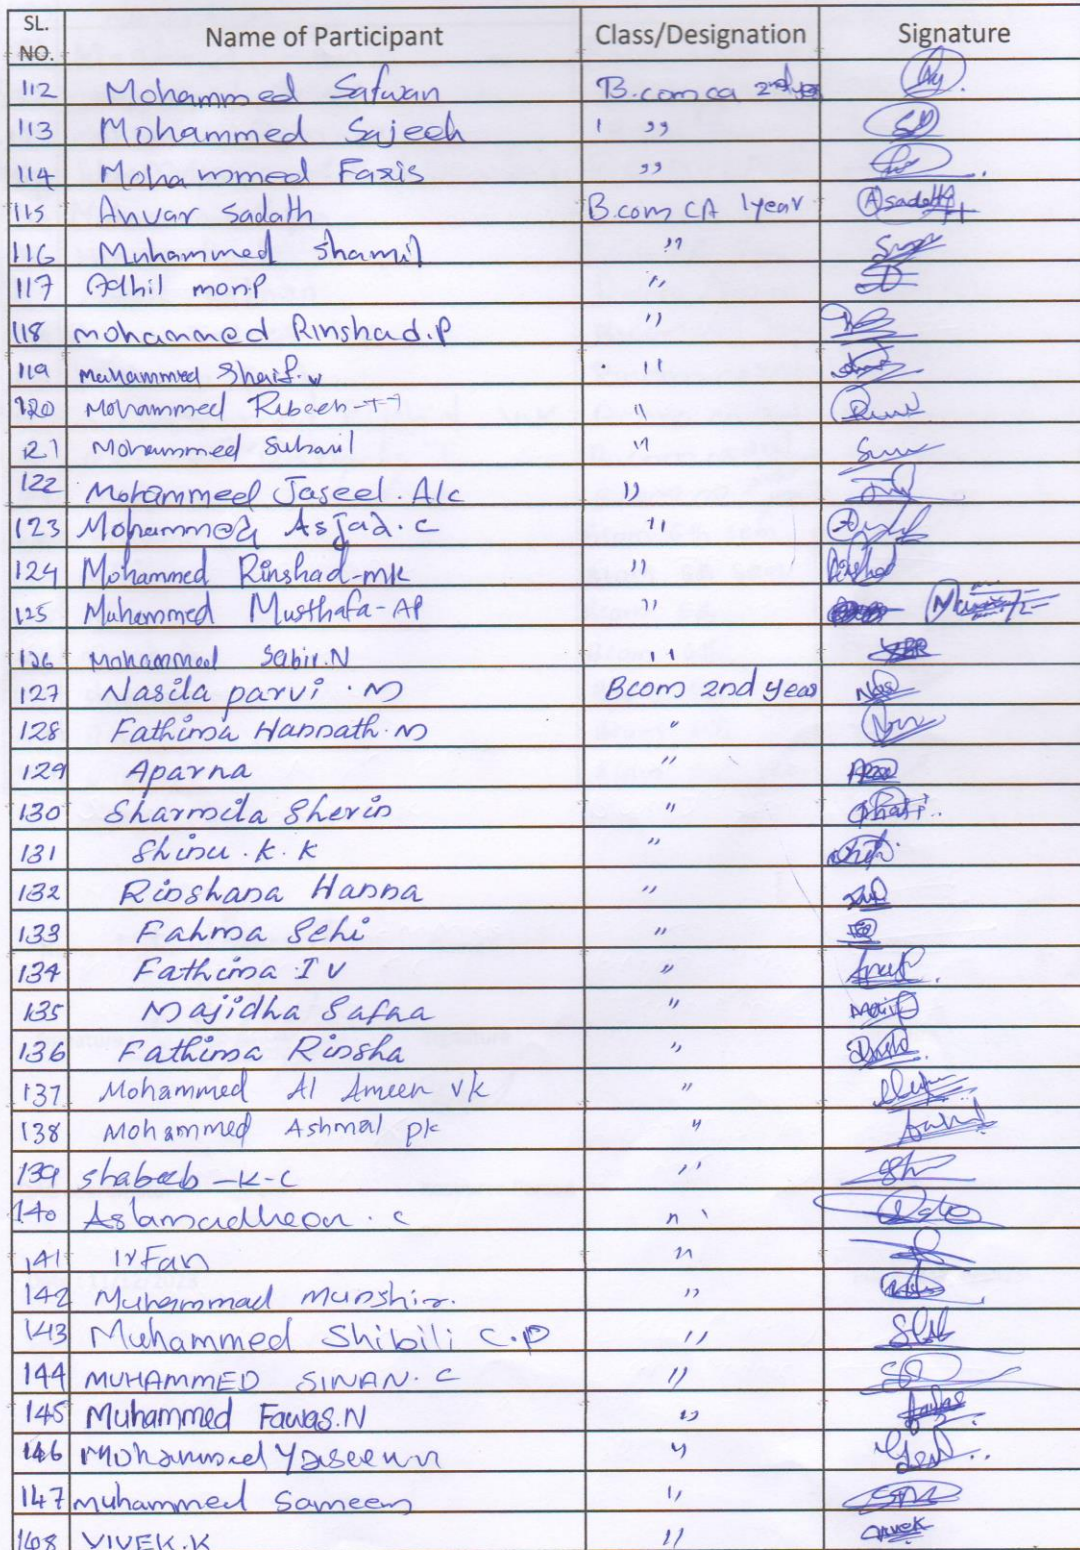 SL. NO. Name of Participant Class/Designation Signature
112 Mohammed Safwan B.com ca 2nd year
113 Mohammed Sajeeh ,,
114 Mohammed Faris ,,
115 Anvar Sadath B.com CA 1year Asadath
116 Muhammed Shamil ,,
117 Adhil mon.P ,,
118 mohammed Rinshad.P ,,
119 Muhammed Shaif.v ,,
120 Mohammed Rabeeh-TT ,,
121 Mohammed Suhail ,,
122 Mohammed Jaseel.Alc ,,
123 Mohammed Asjad.c ,,
124 Mohammed Rinshad-mk ,,
125 Muhammed Musthafa-AP ,,
126 Mohammed Sabir.N ,,
127 Nasila parvi.M Bcom 2nd year
128 Fathima Hannath.M ,,
129 Aparna ,,
130 Sharmila Sherin ,,
131 Shinu.K.K ,,
132 Rinshana Hanna ,,
133 Fahma Sehi ,,
134 Fathima I V ,,
135 Majidha Safaa ,,
136 Fathima Rinsha ,,
137 Mohammed Al Ameen vk ,,
138 Mohammed Ashmal pk ,,
139 shabeeb-K-C ,,
140 Aslamudheen.c ,,
141 irFan ,,
142 Muhammad munshir. ,,
143 Muhammed Shibili C.P ,,
144 MUHAMMED SINAN.C ,,
145 Muhammed Fawas.N ,,
146 Mohammed Yaseen ,,
147 muhammed Sameem ,,
148 VIVEK.K ,, VIVEK